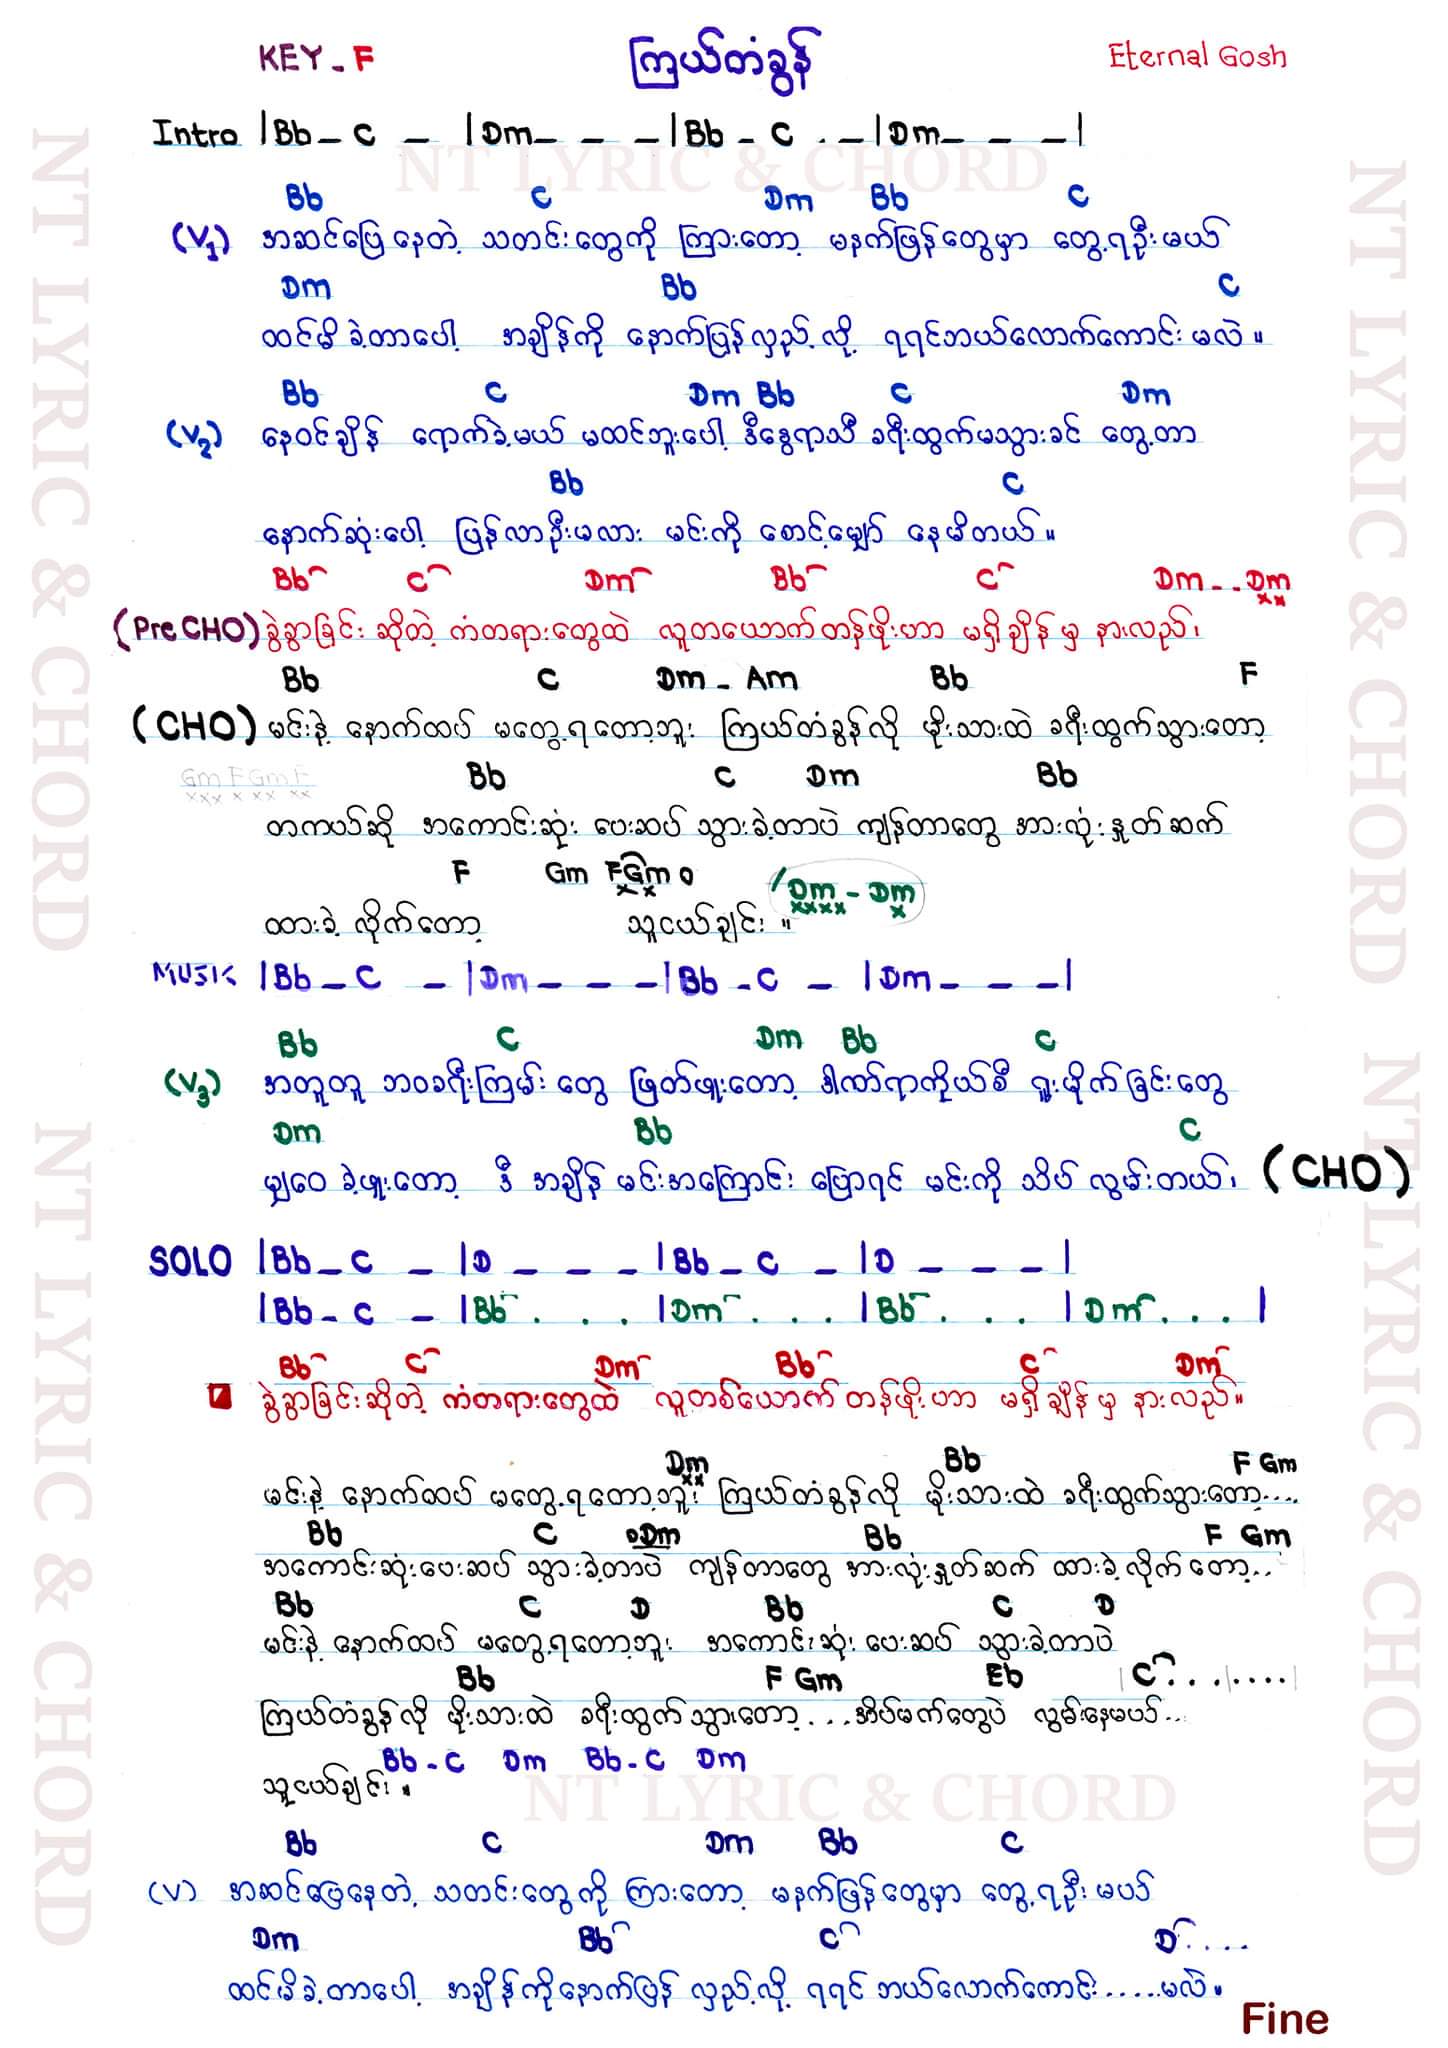 KEY - F ကြယ်တံခွန် Eternal Gosh
Intro |Bb - C - |Dm - - - |Bb - C . - |Dm - - - |
Bb C Dm Bb C
(V1) အဆင်ပြေနေတဲ့ သတင်းတွေကို ကြားတော့ မနက်ဖြန်တွေမှာ တွေ့ရဦးမယ်
Dm Bb C
ထင်မိခဲ့တာပေါ့ အချိန်ကို နောက်ပြန်လှည့်လို့ ရရင်ဘယ်လောက်ကောင်းမလဲ။
Bb C Dm Bb C Dm
(V2) နေဝင်ချိန် ရောက်ခဲ့မယ် မထင်ဘူးပေါ့ ဒီနွေရာသီ ခရီးထွက်မသွားခင် တွေ့တာ
Bb C
နောက်ဆုံးပေါ့ ပြန်လာဦးမလား မင်းကို စောင့်မျှော် နေမိတယ်။
Bb C Dm Bb C Dm - - Dm
(Pre CHO) ခွဲခွာခြင်း ဆိုတဲ့ ကံတရားတွေထဲ လူတယောက်တန်ဖိုးဟာ မရှိချိန်မှ နားလည်၊
Bb C Dm - Am Bb F
(CHO) မင်းနဲ့ နောက်ထပ် မတွေ့ရတော့ဘူး ကြယ်တံခွန်လို မိုးသားထဲ ခရီးထွက်သွားတော့
Gm F Gm F Bb C Dm Bb
တကယ်ဆို အကောင်းဆုံး ပေးဆပ် သွားခဲ့တာပဲ ကျန်တာတွေ အားလုံးနှုတ်ဆက်
F Gm F Gm 0 / Dm - Dm
ထားခဲ့ လိုက်တော့ သူငယ်ချင်း။
MUSIC |Bb - C - |Dm - - - |Bb - C - |Dm - - - |
Bb C Dm Bb C
(V3) အတူတူ ဘဝခရီးကြမ်းတွေ ဖြတ်ဖူးတော့ ဒါဏ်ရာကိုယ်စီ ရှုးမိုက်ခြင်းတွေ
Dm Bb C
မျှဝေ ခဲ့ဖူးတော့ ဒီ အချိန် မင်းအကြောင်း ပြောရင် မင်းကို သိပ် လွမ်းတယ်၊ (CHO)
SOLO |Bb - C - |D - - - |Bb - C - |D - - - |
|Bb - C - |Bb . . . |Dm . . . |Bb . . . |Dm . . . |
Bb C Dm Bb C Dm
ခွဲခွာခြင်းဆိုတဲ့ ကံတရားတွေထဲ လူတစ်ယောက် တန်ဖိုးဟာ မရှိချိန်မှ နားလည်။
Dm Bb F Gm
မင်းနဲ့ နောက်ထပ် မတွေ့ရတော့ဘူး ကြယ်တံခွန်လို မိုးသားထဲ ခရီးထွက်သွားတော့....
Bb C 0Dm Bb F Gm
အကောင်းဆုံးပေးဆပ် သွားခဲ့တာပဲ ကျန်တာတွေ အားလုံးနှုတ်ဆက် ထားခဲ့လိုက်တော့..
Bb C D Bb C D
မင်းနဲ့ နောက်ထပ် မတွေ့ရတော့ဘူး အကောင်းဆုံး ပေးဆပ် သွားခဲ့တာပဲ
Bb F Gm Eb |C . . .|. . . .|
ကြယ်တံခွန်လို မိုးသားထဲ ခရီးထွက်သွားတော့....အိပ်မက်တွေပဲ လွမ်းနေမယ်...
Bb - C Dm Bb - C Dm
သူငယ်ချင်း။
Bb C Dm Bb C
(V) အဆင်ပြေနေတဲ့ သတင်းတွေကို ကြားတော့ မနက်ဖြန်တွေမှာ တွေ့ရဦးမယ်
Dm Bb C D . . . .
ထင်မိခဲ့တာပေါ့ အချိန်ကိုနောက်ပြန် လှည့်လို့ ရရင် ဘယ်လောက်ကောင်း.....မလဲ။
Fine
NT LYRIC & CHORD
NT LYRIC & CHORD
NT LYRIC & CHORD
NT LYRIC & CHORD
NT LYRIC & CHORD
NT LYRIC & CHORD